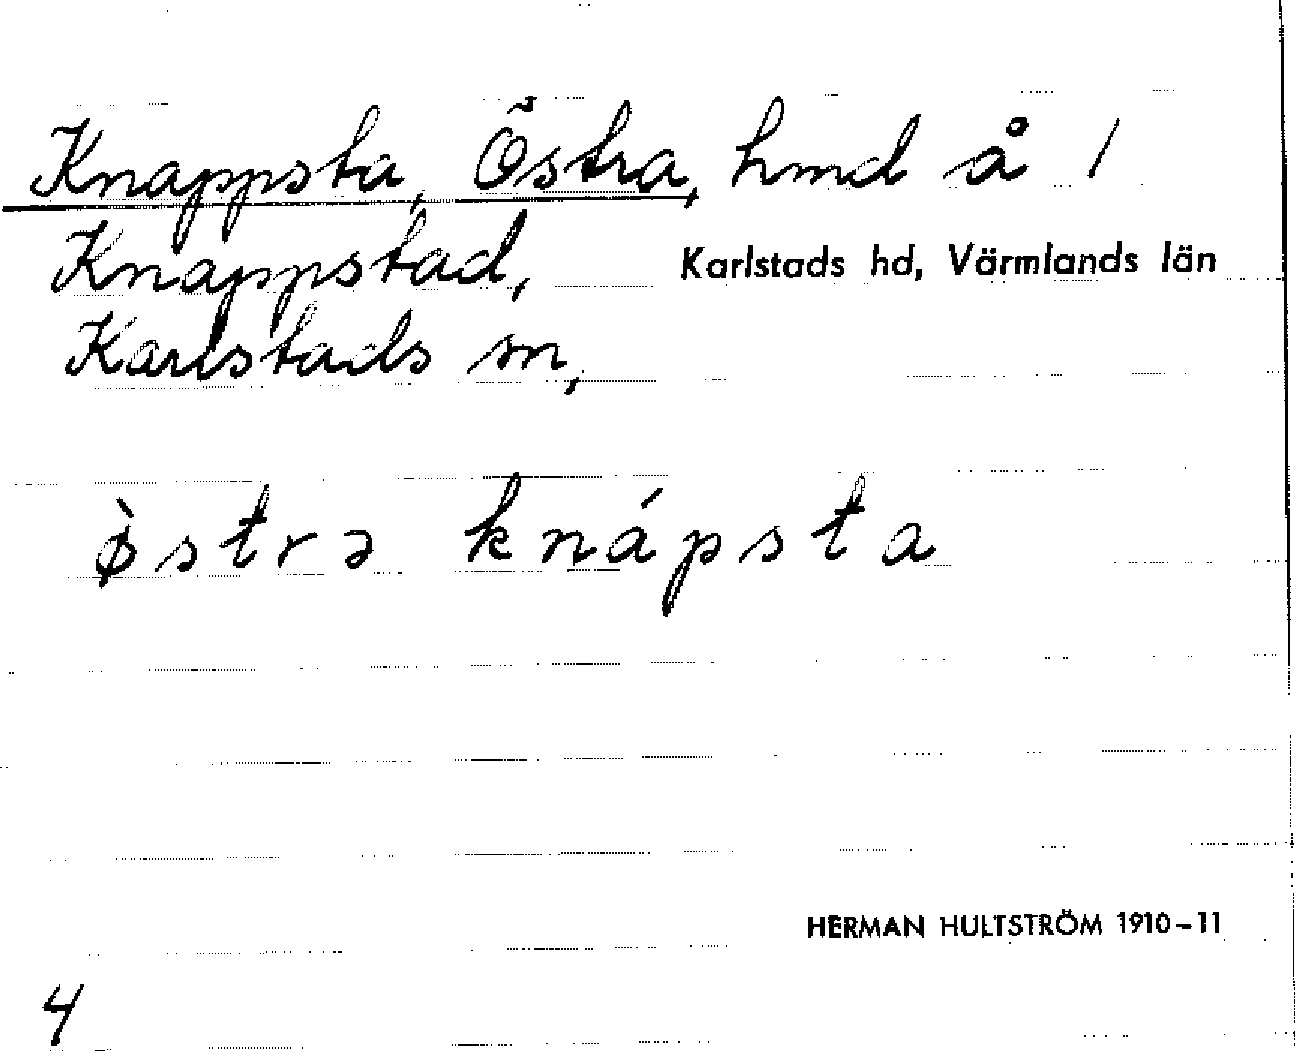 Knappsta, Östra, hmd å /
Knappstad, Karlstads hd, Värmlands län
Karlstads sn,
ø̀strə knápsta
HERMAN HULTSTRÖM 1910-11
4